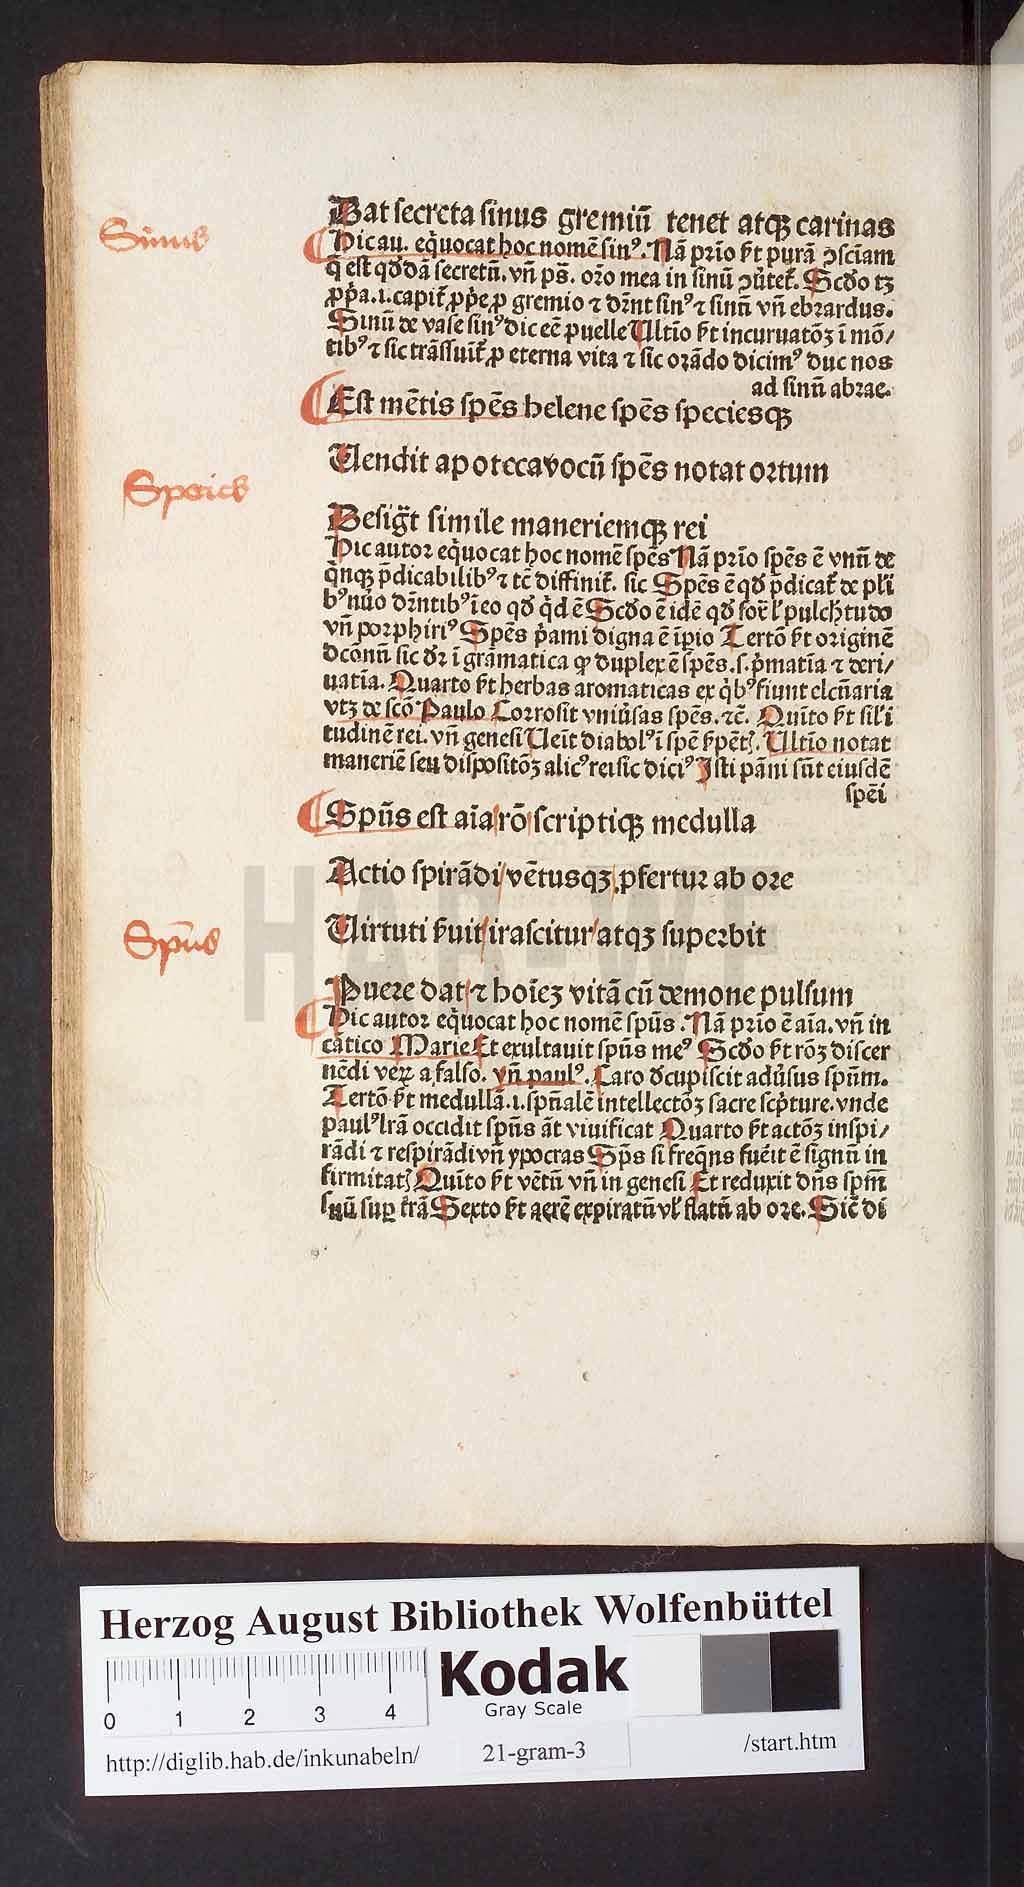 Sinus
Dat secreta sinus gremiū tenet atqꝫ carinas
Hic au. eq̇uocat hoc nomē sinꝰ. Nā prīo ſt purā ↄsciam
q̄ est qd̓dā secretū. vn̄ ps̄. or̄o mea in sinū ↄu̓tet᷑. Scd̓o tꝫ
ꝓpͥa. i. capit᷑ ꝓpͥe ꝓ gremio ⁊ dn̄t sinꝰ ⁊ sinū vn̄ ebrardus.
Sinū de vase sinꝰ dic eē puelle Ultīo ſt incuruatōꝫ ī mō/
tibꝰ ⁊ sic trāssuīt᷑ ꝓ eterna vita ⁊ sic orādo dicimꝰ duc nos
ad sinū abrae.
Est mētis spēs helene spēs speciesqꝫ
Uendit apotecavocū spēs notat ortum
Species
Desigt̄ simile maneriemqꝫ rei
Hic autor eq̇uocat hoc nomē spēs Nā prīo spēs ē vnū de
q̇nqꝫ p̄dicabilibꝰ ⁊ tē diffinit᷑. sic Spēs ē qd̓ p̄dicat᷑ de pl̄i
bꝰ nu̓o dr̄ntibꝰ ī eo qd̓ q̇d ē Scd̓o ē idē qd̓ for̄ l̓ pulch̓tudo
vn̄ porphiriꝰ Spēs pͥami digna ē īpio Tertō ſt originē
dc̄onū sic dr̄ ī grāmatica ꝙ duplex ē spēs. s. pͥmatīa ⁊ deri/
uatīa. Quarto ſt herbas aromaticas ex q̇bꝰ fiunt elcūaria
vtꝫ de scō Paulo Corrosit vniu̓sas spēs. ⁊c̄. Quīto ſt sil̓i
tudinē rei. vn̄ genesi Ueīt diabolꝰ ī spē ẜpēt. Ultīo notat
maneriē seu dispositōꝫ alicꝰ rei sic diciꝰ Isti pāni sūt eiusdē
spēi
Spūs est aīa rō scriptiqꝫ medulla
Actio spirādi vētusqꝫ ꝓfertur ab ore
Spūs
Uirtuti ẜuit irascitur atqꝫ superbit
Puere dat ⁊ hoīeꝫ vitā cū demone pulsum
Hic autor eq̇uocat hoc nomē spūs. Nā prīo ē aīa. vn̄ in
cātico Marie Et exultauit spūs meꝰ Scd̓o ſt rōꝫ discer
nēdi veꝝ a falso. vn̄ paulꝰ. Caro ↄcupiscit adu̓sus spūm.
Tertō ſt medullā. i. spūalē intellectōꝫ sacre scpͥture. vnde
paulꝰ lrā occidit spūs āt viuificat Quarto ſt actōꝫ inspi/
rādi ⁊ respirādi vn̄ ypocras Sps̄ si freq̄ns fueīt ē signū in
firmitat Quīto ſt vētū vn̄ in genesi Et reduxit dn̄s spm̄
suū suꝑ trā Sexto ſt aerē expiratū vl̓ flatū ab ore. Sic̄ di
HAB-WF
Herzog August Bibliothek Wolfenbüttel
0 1 2 3 4
Kodak
Gray Scale
http://diglib.hab.de/inkunabeln/
21-gram-3
/start.htm